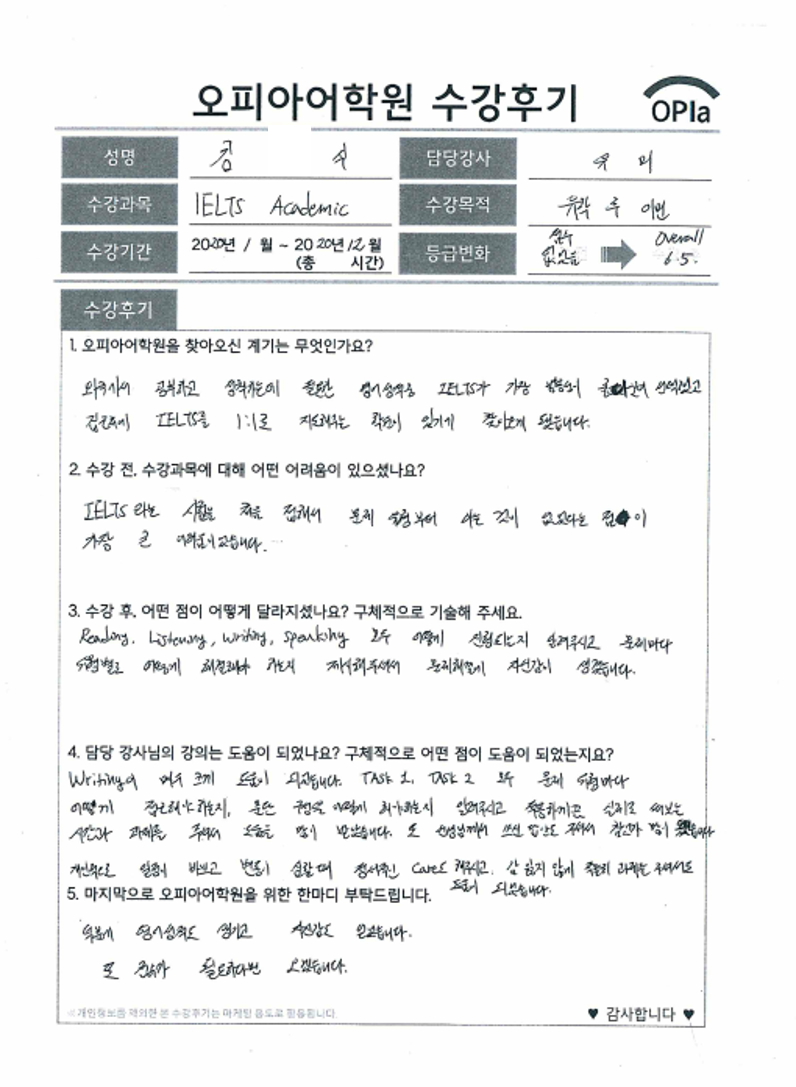 오피아어학원 수강후기
OPIa
성명 공 식 담당강사 유 미
수강과목 IELTS Academic 수강목적 유학 후 이민
수강기간 2020년 1월 ~ 2020년 12월 (총 시간) 등급변화 점수 없음 Overall 6.5.
수강후기
1. 오피아어학원을 찾아오신 계기는 무엇인가요?
외국가서 공부하고 생활하는데 필요한 영어성적중 IELTS가 가장
집근처에 IELTS를 1:1로 지도해주는 학원이 있기에 찾아오게 됐습니다.
2. 수강 전, 수강과목에 대해 어떤 어려움이 있으셨나요?
IELTS 라는 시험을 처음 접해서 문제 유형부터 아는 것이 없었다는 점이
가장 큰 어려움이었습니다.
3. 수강 후, 어떤 점이 어떻게 달라지셨나요? 구체적으로 기술해 주세요.
Reading, Listening, Writing, Speaking 모두 어떻게 진행되는지 알려주시고 문제마다
유형별로 어떻게 해결해야 하는지 지시해주셔서 문제해결에 자신감이 생겼습니다.
4. 담당 강사님의 강의는 도움이 되었나요? 구체적으로 어떤 점이 도움이 되었는지요?
Writing에 매우 크게 도움이 되었습니다. TASK 1, TASK 2 모두 문제 유형마다
어떻게 접근해야 하는지, 문단 구성은 어떻게 해야하는지 알려주시고 실제로 써보는
시간과 과제를 주셔서 도움을 많이 받았습니다. 또 선생님께서 쓰신 답안도 주셔서 참고가 많이
개인적으로 일정이 바쁘고 변동이 심할 때 Care도 해주시고, 감 잃지 않게 과제를 주셔서도
도움이 되었습니다.
5. 마지막으로 오피아어학원을 위한 한마디 부탁드립니다.
덕분에 영어성적도 생기고 자신감도 얻었습니다.
또 필요하다면 오겠습니다.
※개인정보를 제외한 본 수강후기는 마케팅 용도로 활용됩니다.
♥ 감사합니다 ♥